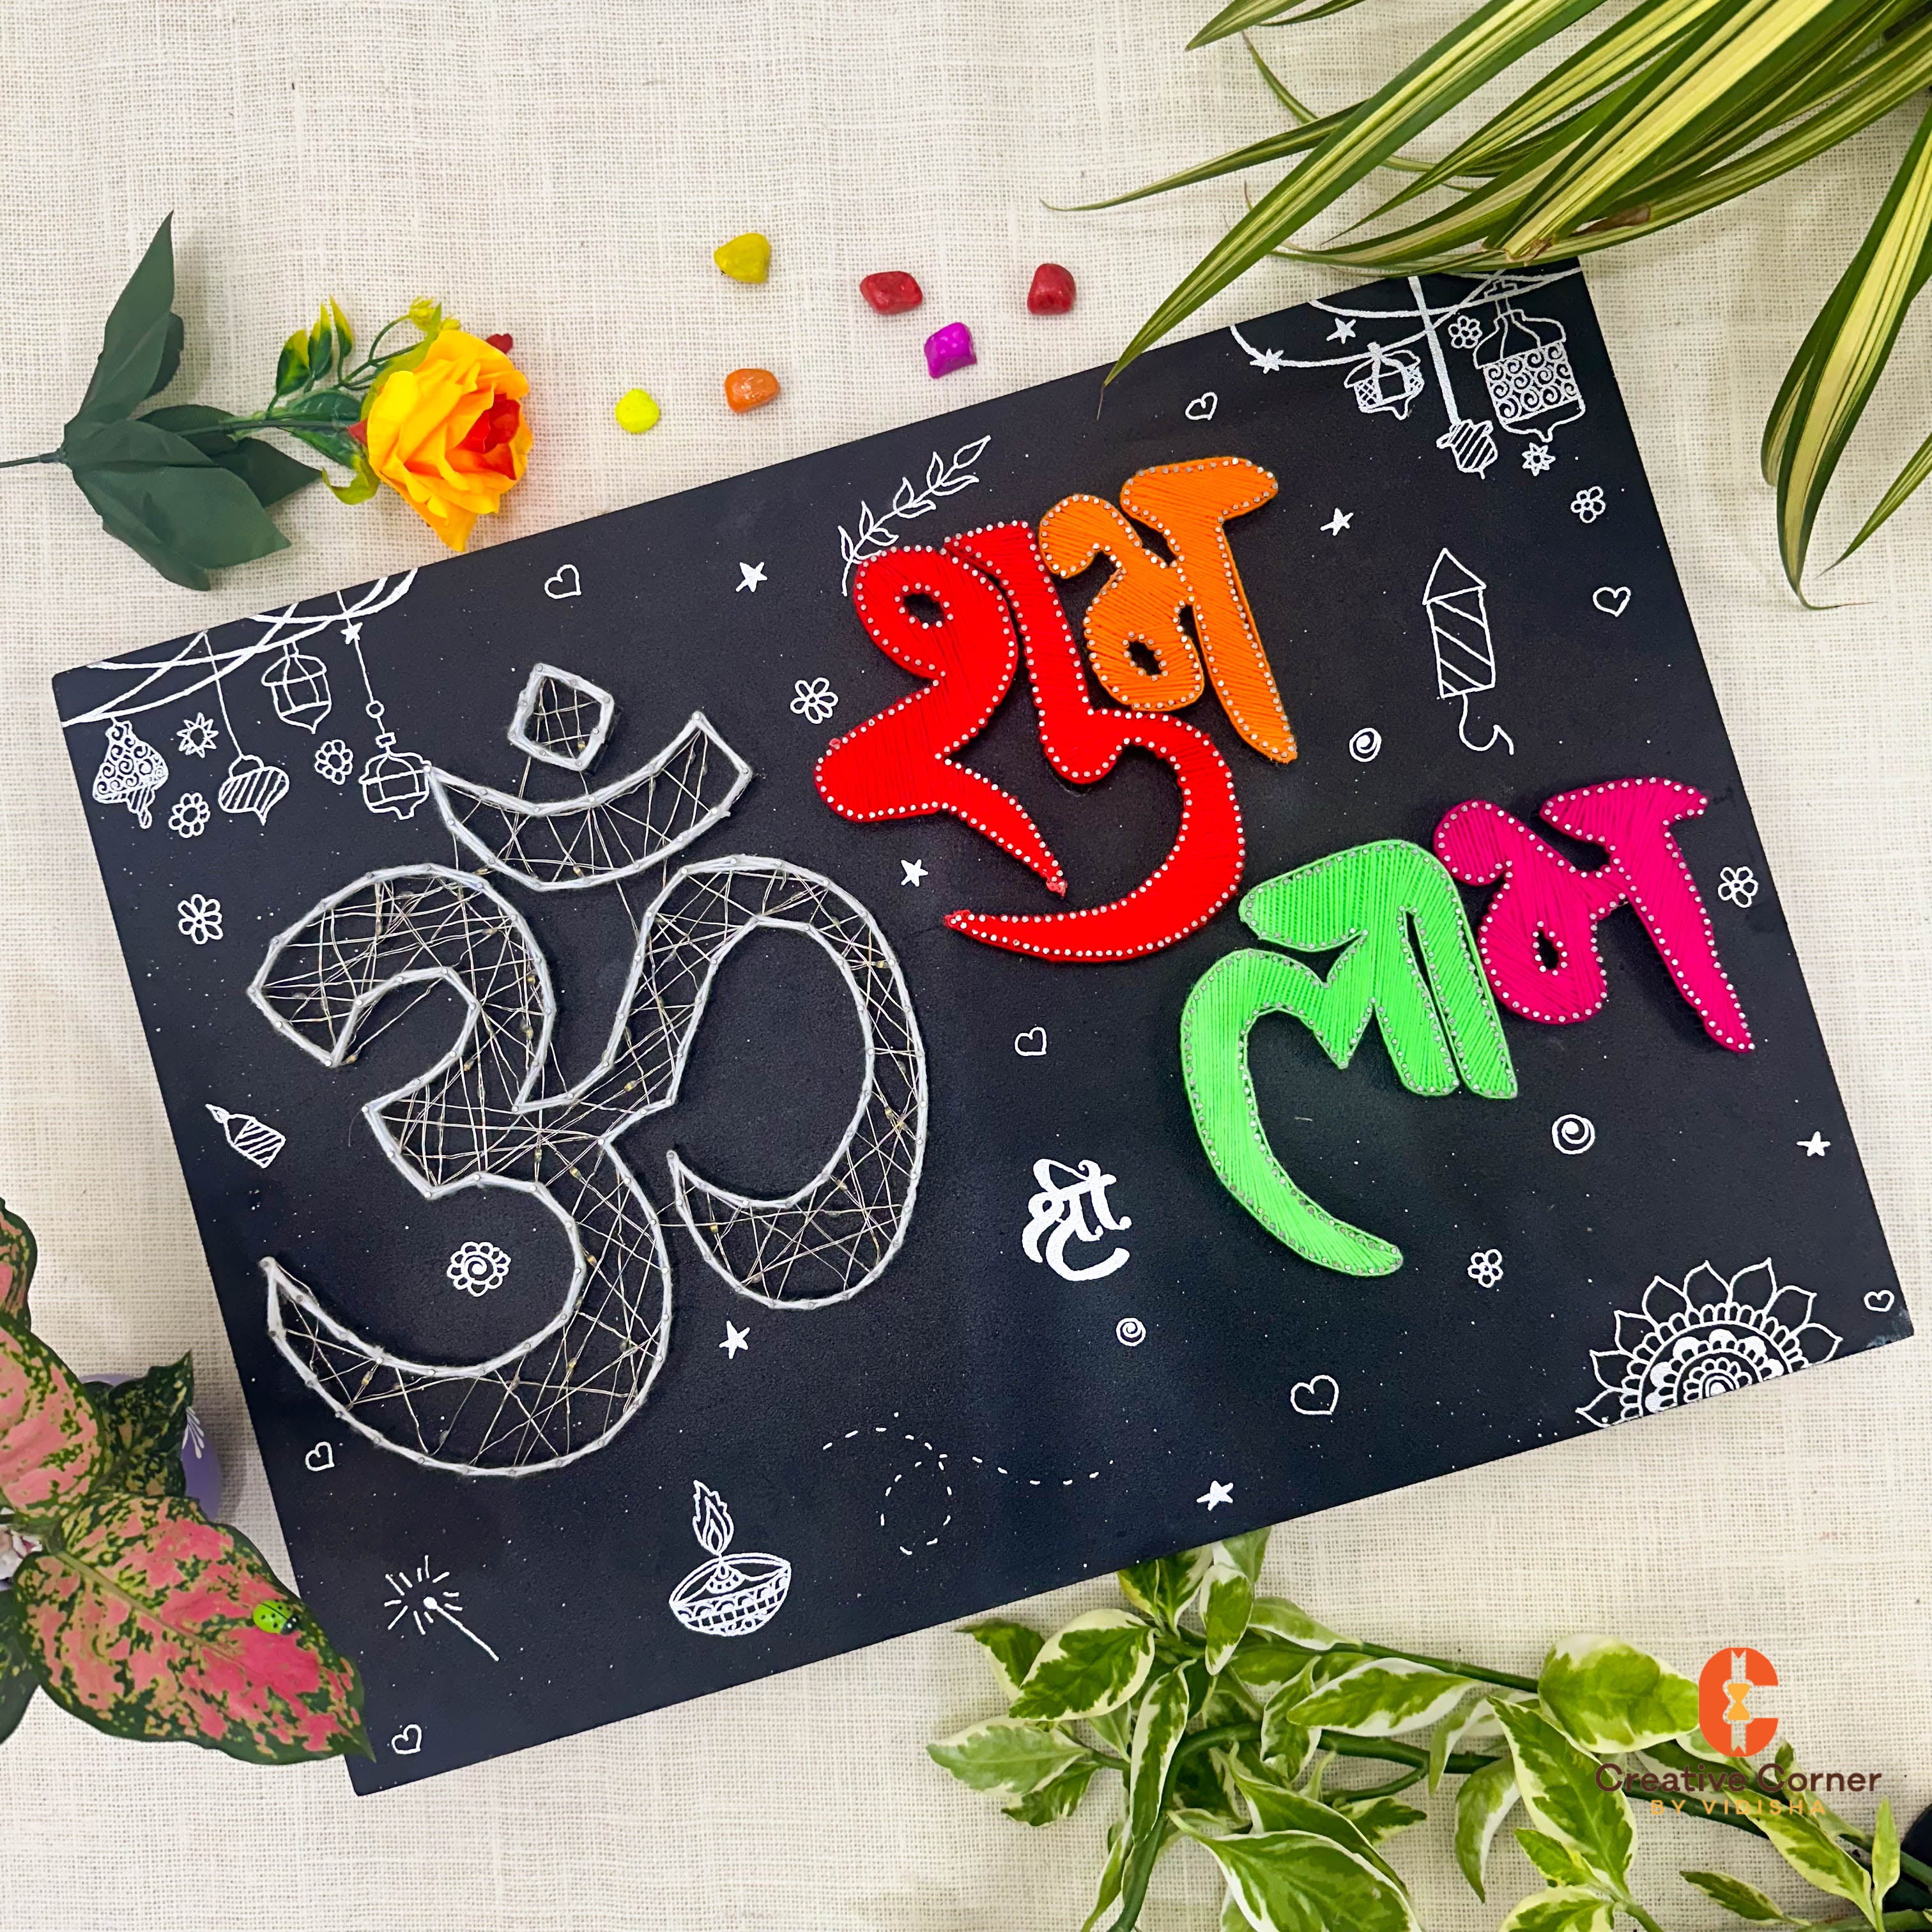 ॐ
शुभ
लाभ
श्री
Creative Corner
BY VIDISHA